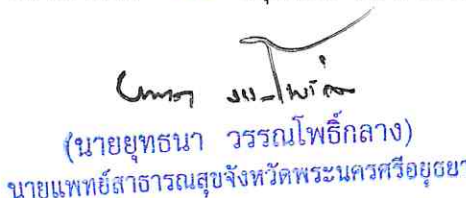 (นายยุทธนา วรรณโพธิ์กลาง)
นายแพทย์สาธารณสุขจังหวัดพระนครศรีอยุธยา